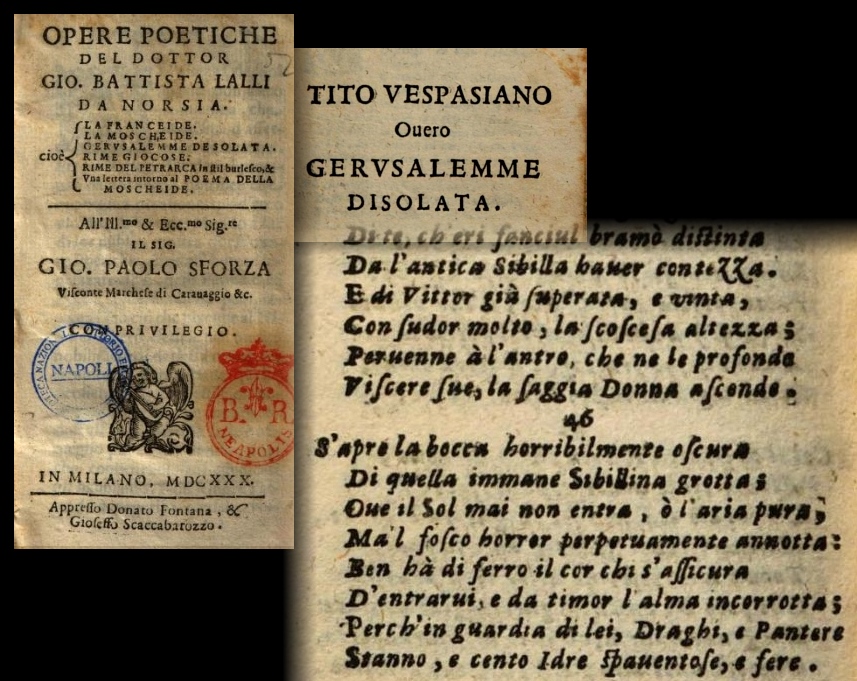 OPERE POETICHE
DEL DOTTOR
GIO. BATTISTA LALLI
DA NORSIA.
cioè
LA FRANCEIDE.
LA MOSCHEIDE.
GERVSALEMME DESOLATA.
RIME GIOCOSE.
RIME DEL PETRARCA in stil burlesco, &
Vna lettera intorno al POEMA DELLA
MOSCHEIDE.
All' Ill.mo & Ecc.mo Sig.re
IL SIG.
GIO. PAOLO SFORZA
Visconte Marchese di Carauaggio &c.
CON PRIVILEGIO.
NAPOLI
B. R.
NEAPOLIS
IN MILANO, MDCXXX.
Appresso Donato Fontana, &
Gioseffo Scaccabarozzo.
TITO VESPASIANO
Ouero
GERVSALEMME
DISOLATA.
Di te, ch'eri fanciul bramò distinta
Da l'antica Sibilla hauer contezza.
E di Vittor già superata, e vinta,
Con sudor molto, la scoscesa altezza;
Peruenne à l'antro, che ne le profonde
Viscere sue, la saggia Donna asconde.
46
S'apre la bocca horribilmente oscura
Di quella immane Sibillina grotta;
Oue il Sol mai non entra, ò l'aria pura;
Ma'l fosco horror perpetuamente annotta:
Ben hà di ferro il cor chi s'assicura
D'entrarui, e da timor l'alma incorrotta;
Perch'in guardia di lei, Draghi, e Pantere
Stanno, e cento Idre spauentose, e fere.